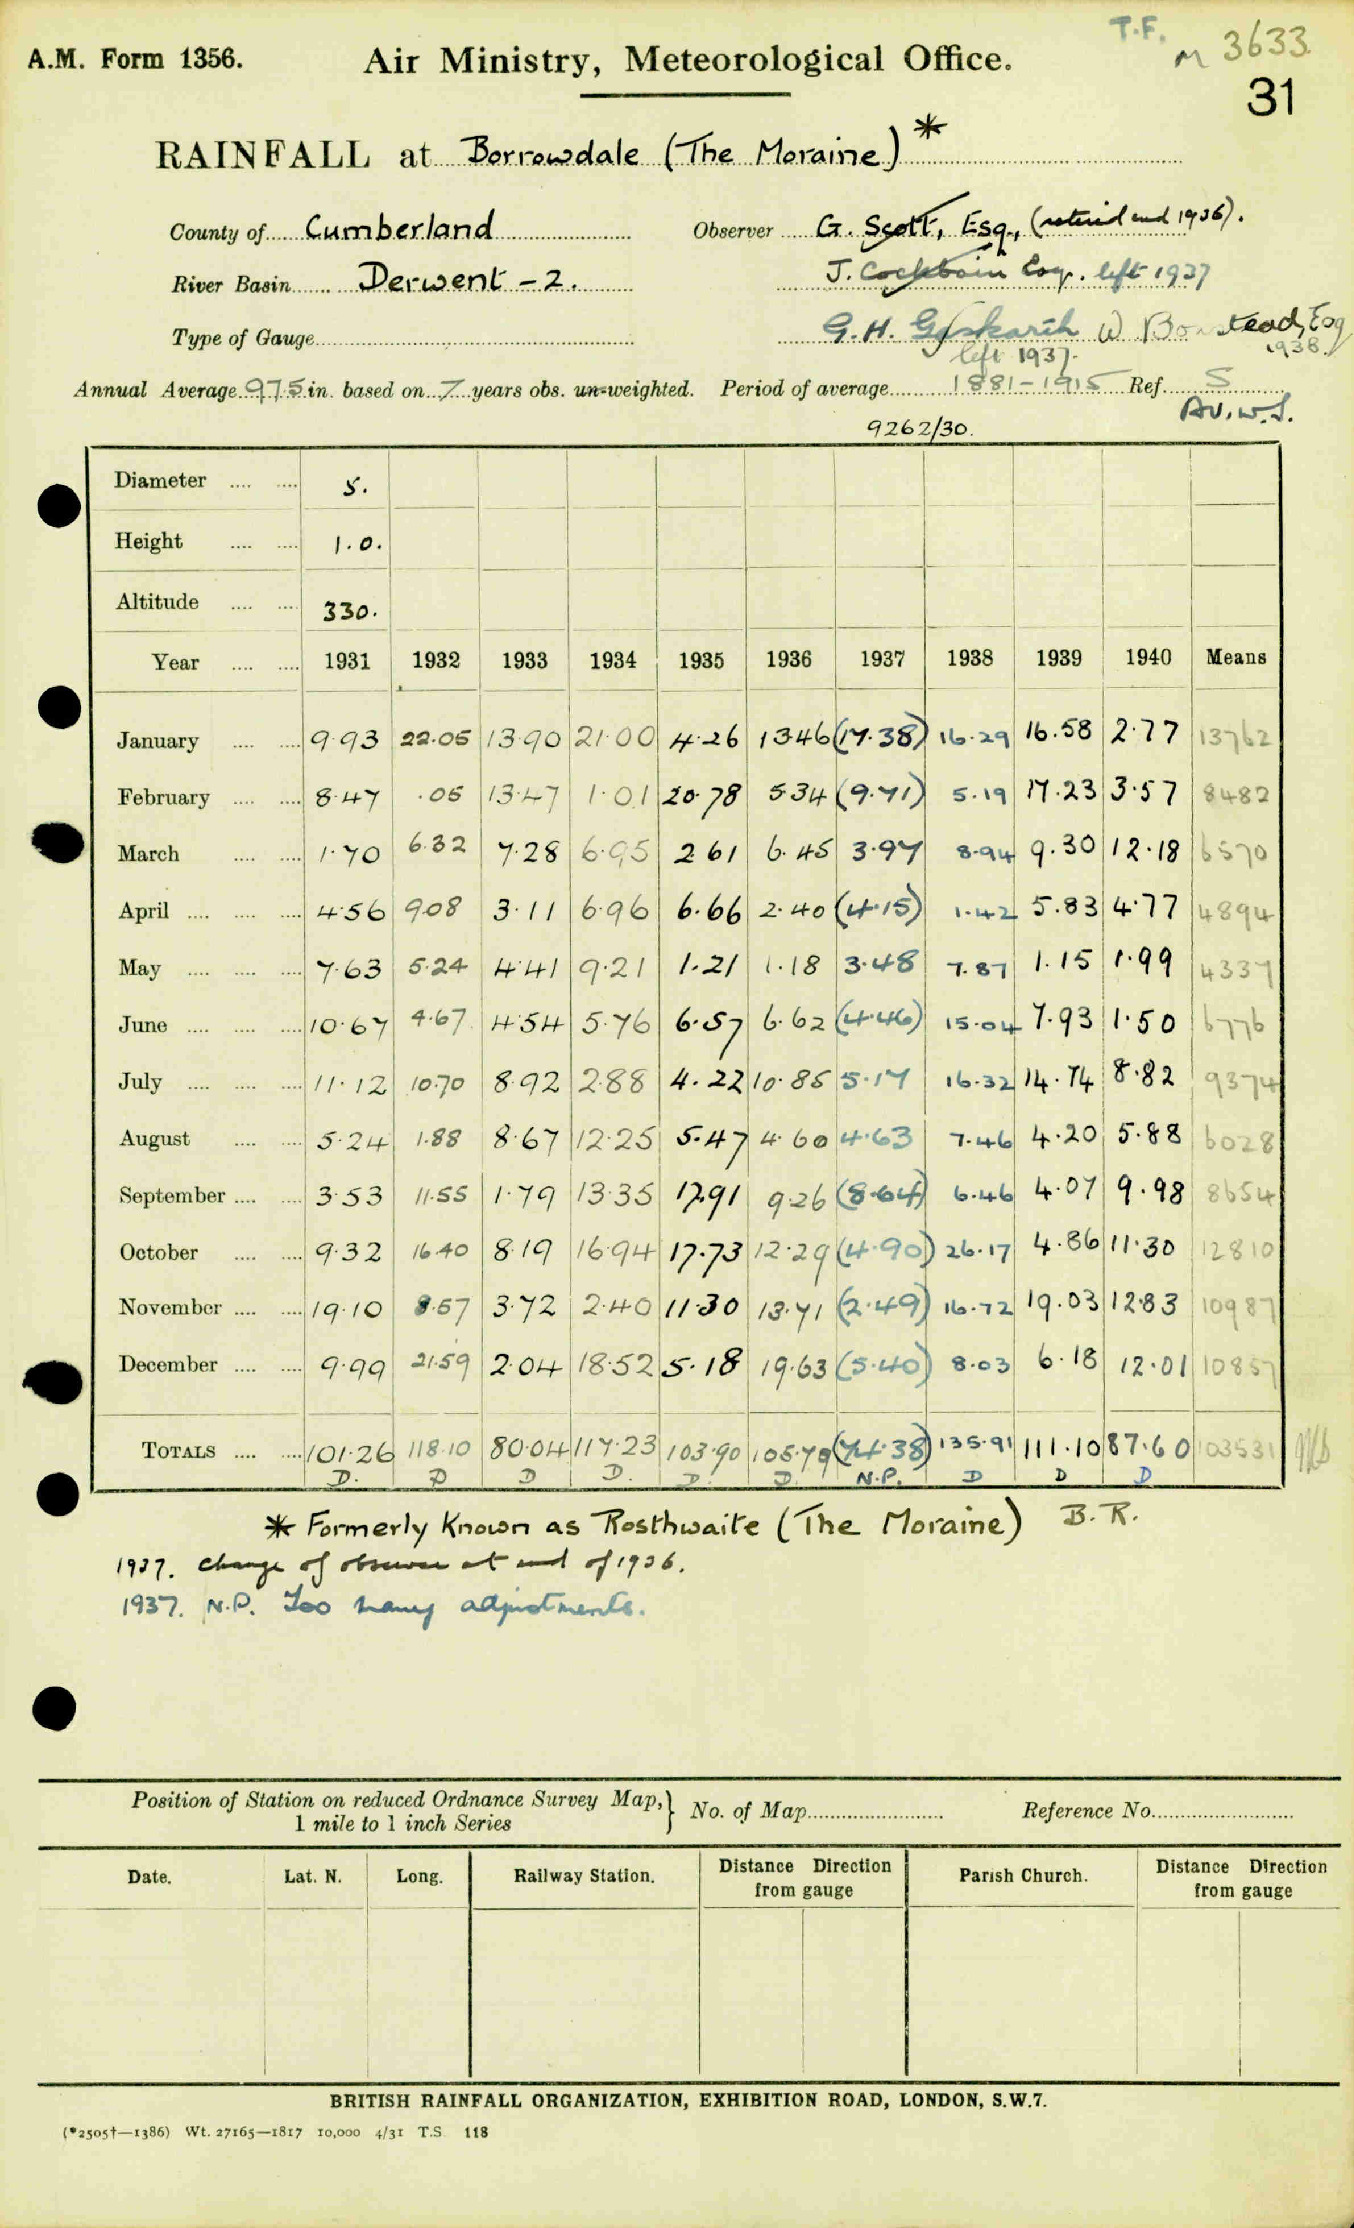 T.F. M 3633
A.M. Form 1356. Air Ministry, Meteorological Office.
31
RAINFALL at Borrowdale (The Moraine) *
County of Cumberland Observer G. Scott, Esq., (retired end 1936).
River Basin Derwent - 2. J. Cockbain Esq. left 1937
Type of Gauge G.H. Gaskarth W Bowstead, Esq
left 1937. 1938.
Annual Average 97.5 in. based on 7 years obs. un-weighted. Period of average 1881-1915 Ref. S
Av. w.S.
9262/30.
Diameter 5.
Height 1.0.
Altitude 330.
Year 1931 1932 1933 1934 1935 1936 1937 1938 1939 1940 Means
January 9.93 22.05 13.90 21.00 4.26 13.46 (17.38) 16.29 16.58 2.77 13762
February 8.47 .05 13.47 1.01 20.78 5.34 (9.71) 5.19 17.23 3.57 8482
March 1.70 6.32 7.28 6.95 2.61 6.45 3.97 8.94 9.30 12.18 6570
April 4.56 9.08 3.11 6.96 6.66 2.40 (4.15) 1.42 5.83 4.77 4894
May 7.63 5.24 4.41 9.21 1.21 1.18 3.48 7.87 1.15 1.99 4337
June 10.67 4.67 4.54 5.76 6.57 6.62 (4.46) 15.04 7.93 1.50 6776
July 11.12 10.70 8.92 2.88 4.22 10.85 5.17 16.32 14.74 8.82 9374
August 5.24 1.88 8.67 12.25 5.47 4.60 4.63 7.46 4.20 5.88 6028
September 3.53 11.55 1.79 13.35 17.91 9.26 (8.64) 6.46 4.07 9.98 8654
October 9.32 16.40 8.19 16.94 17.73 12.29 (4.90) 26.17 4.86 11.30 12810
November 19.10 8.57 3.72 2.40 11.30 13.71 (2.49) 16.72 19.03 12.83 10987
December 9.99 21.59 2.04 18.52 5.18 19.63 (5.40) 8.03 6.18 12.01 10857
TOTALS 101.26 118.10 80.04 117.23 103.90 105.79 (74.38) 135.91 111.10 87.60 103531
D. D D D. D. D. N.P. D D D
* Formerly Known as Rosthwaite (The Moraine) B.R.
1937. change of observer at end of 1936.
1937. N.P. Too many adjustments.
Position of Station on reduced Ordnance Survey Map, } No. of Map Reference No.
1 mile to 1 inch Series
Date. Lat. N. Long. Railway Station. Distance Direction from gauge Parish Church. Distance Direction from gauge
BRITISH RAINFALL ORGANIZATION, EXHIBITION ROAD, LONDON, S.W.7.
(*2505†—1386) Wt. 27165—1817 10,000 4/31 T.S. 118